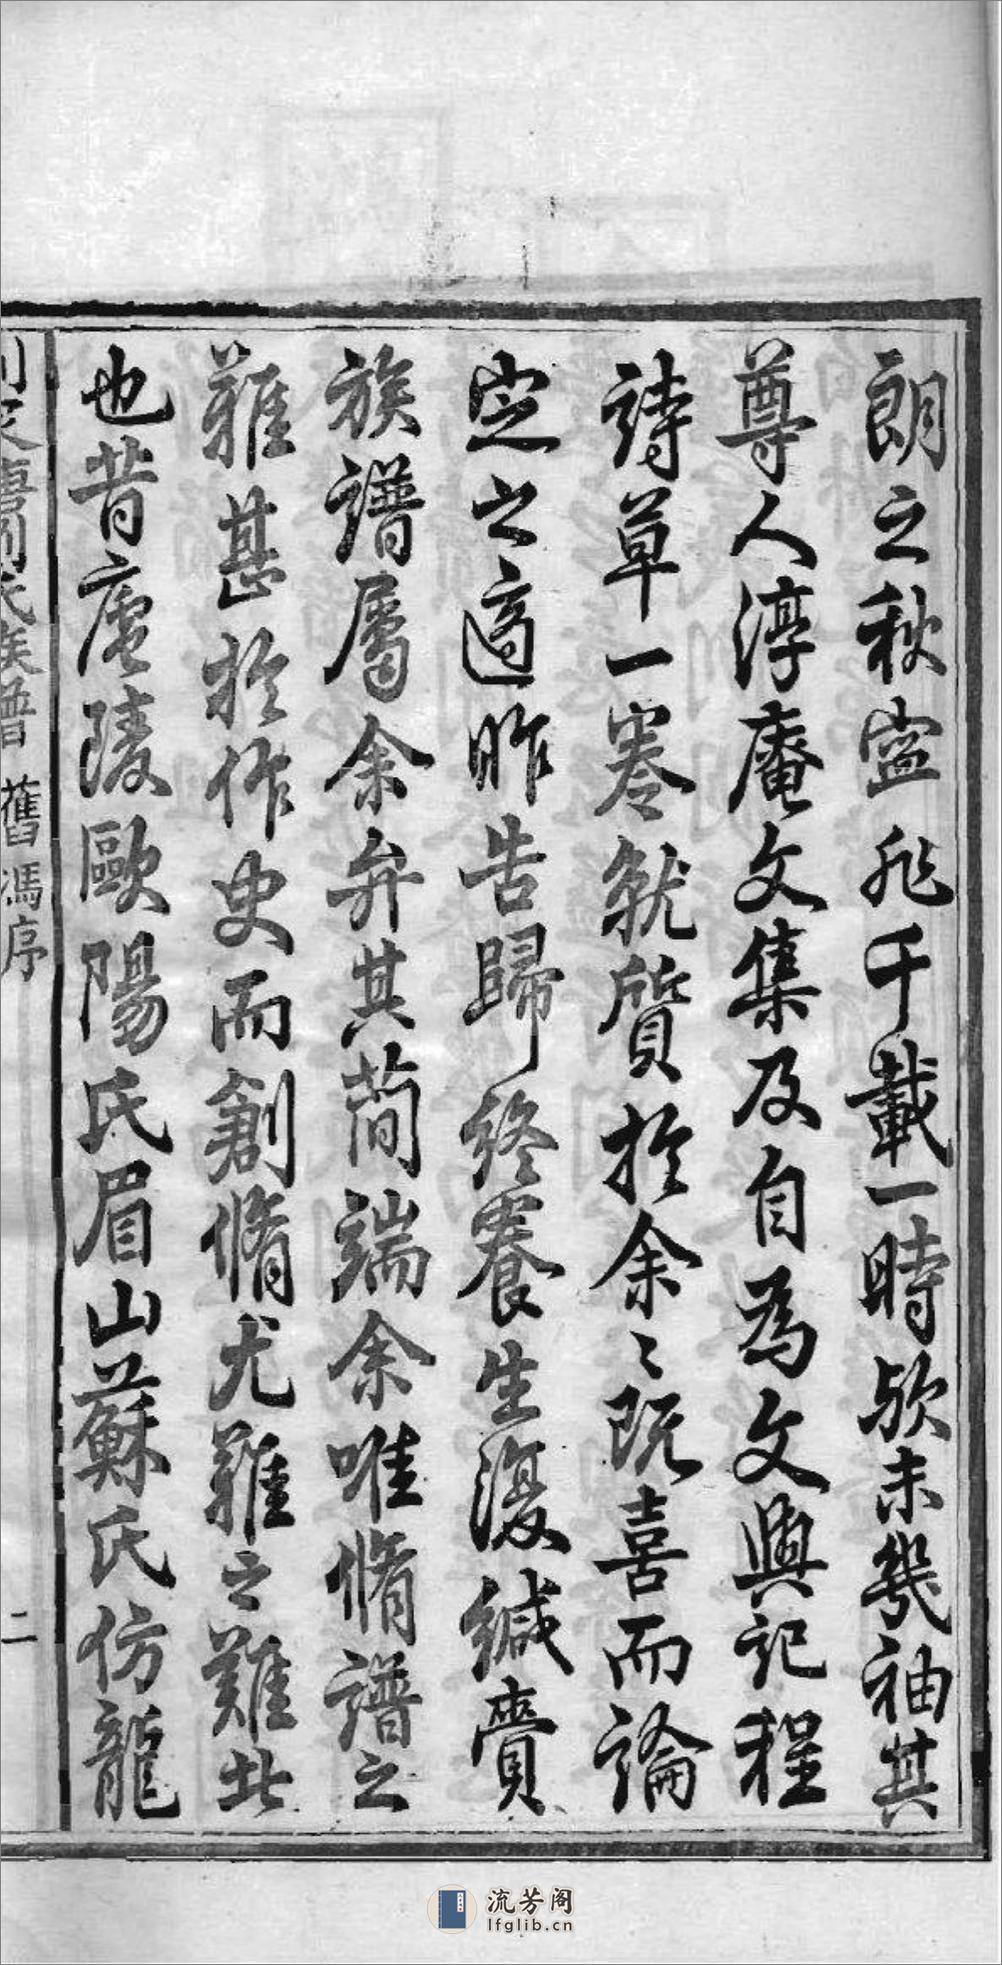 朗之秋寔非千載一時歟未幾袖其
尊人淳庵文集及自為文與記程
詩草一卷就質於余〻既喜而論
定之適昨告歸終養生復緘賷
族譜屬余弁其簡端余唯脩譜之
難甚於作史而創脩尤難之難此
也昔廬陵歐陽氏眉山蘇氏仿龍
氏族譜 舊馮序 二
流芳阁
lfglib.cn